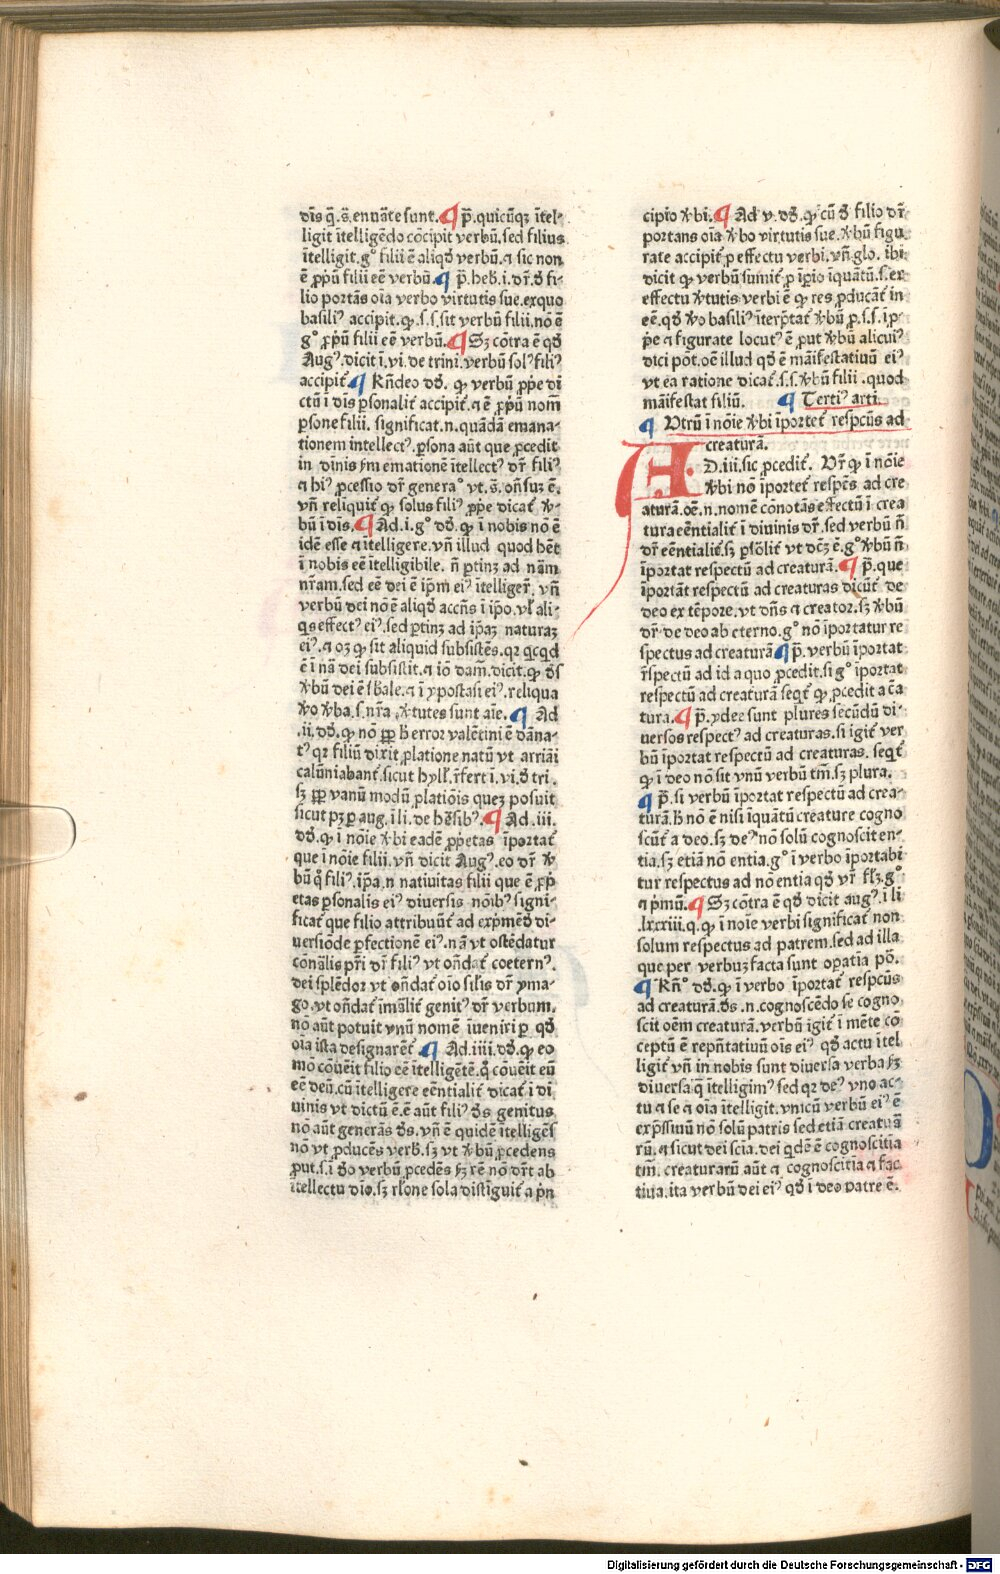 dr̄is q̄.s̄.enuāte sunt. ¶ p̄. quicūqꝫ ītel-
ligit ītelligēdo cōcipit verbū. sed filius
ītelligit. gͦ filii ē aliqd̄ verbū. ⁊ sic non
ē ꝓpū filii eē verbū. ¶ p̄. heb. i. dr̄ ꝺ̄ fi-
lio portās oīa verbo virtutis sue. exquo
basiliꝰ accipit. ꝙ s.s. sit verbū filii. nō ē
gͦ ꝓpū filii eē verbū. ¶ Sꝫ cōtra ē qd̄
Augꝰ. dicit i. vi. de trini. verbū solꝰ filiꝰ
accipit̄ ¶ Rn̄deo dd̄. ꝙ verbū ꝓpe di
ctū ī dīs ꝑsonalit̄ accipit̄. ⁊ ē ꝓpū nom̄
ꝑsone filii. significat. n. quādā emana-
tionem intellectꝰ. ꝑsona aūt que ꝓcedit
in dīnis ẜm emationē ītellectꝰ dr̄ filiꝰ
⁊ hiꝰ ꝓcessio dr̄ generaͦ vt. s̄. on̄suꝫ ē.
vn̄ reliquit̄ ꝙ solus filiꝰ ꝓpe dicat̄ v̄-
bū ī dīs. ¶ Ad. i. gͦ dd̄. ꝙ ī nobis nō ē
idē esse ⁊ ītelligere. vn̄ illud quod hēt
ī nobis eē ītelligibile. n̄ ꝑtinꝫ ad nām
nr̄am. sed eē dei ē ip̄m eiꝰ ītelliger̄. vn̄
verbū dei nō ē aliqd̄ accn̄s ī ip̄o. vl̄ ali-
qͥs effectꝰ eiꝰ. sed ꝑtinꝫ ad ip̄aꝫ naturaꝫ
eiꝰ. ⁊ oꝫ ꝙ sit aliquid subsistēs. qꝛ qͥcqͥd
ē ī nā dei subsistit. ⁊ iō dam̄. dicit. ꝙ ds̄
v̄bū dei ē sb̄ale. ⁊ ī ypostasi eiꝰ. reliqua
v̄o v̄ba. s. nr̄a v̄tutes sunt aīe. ¶ Ad
.ii. dd̄. ꝙ nō ꝓp h̄ error valētini ē dāna-
tꝰ qꝛ filiū dixit ꝓlatione natū vt arriāi
calūniabant̄. sicut hyll̄. r̄fert ī. vi. ꝺ̄ tri.
sꝫ ꝓp vanū modū ꝓlatiōis queꝫ posuit
sicut pꝫ ꝑ aug. ī li. de hēsibꝰ. ¶ Ad. iii.
dd̄. ꝙ ī noīe v̄bi eadē ꝓpetas īportat̄
que ī noīe filii. vn̄ dicit Augꝰ. eo dr̄ v̄
bū qͦ filiꝰ. ip̄a. n. nativitas filii que ē ꝓp
etas ꝑsonalis eiꝰ diuersis nōibꝰ signi-
ficat̄ que filio attribuūt̄ ad exp̄mēd̄ di-
uersiōde ꝑfectionē eiꝰ. nā vt ostēdatur
con̄alis pr̄i dr̄ filiꝰ vt on̄dat̄ coeternꝰ.
dei splēdoꝛ vt on̄dat̄ oīo sīlis dr̄ yma-
go. vt on̄dat̄ īmālit̄ genitꝰ dr̄ verbum.
nō aūt potuit vnū nomē iueniri ꝑ qd̄
oīa ista designarēt̄ ¶ Ad. iiii. dd̄. ꝙ eo
mō cōueīt filio eē ītelligētē. qͦ cōueīt eū
eē deū. cū ītelligere eēntialit̄ dicat̄ ī di
uinis vt dictū ē. ē aūt filiꝰ ds̄ genitus
nō aūt generās ds̄. vn̄ ē quidē ītelligēs
nō vt ꝓducēs verb̄. sꝫ vt v̄bū ꝓcedens
put. s. ī d̄o verbū ꝓcedēs ẜꝫ rē nō dr̄t ab
ītellectu dīo. sꝫ rl̄one sola distīguit̄ a pn̄
cipio v̄bi. ¶ Ad. v. dd̄. ꝙ cū ꝺ̄ filio dr̄
portans oīa v̄bo virtutis sue. v̄bū figu
rate accipit̄ ꝓ effectu verbi. vn̄. glo. ibi
dicit ꝙ verbū sumit̄ ꝓ īpio īquātū. s. ex
effectu v̄tutis verbi ē ꝙ res ꝓducāt̄ in
eē. qd̄ v̄o basiliꝰ īterp̄tat̄ v̄bū ꝓ. s.s. īp-
pe ⁊ figurate locutꝰ ē put v̄bū alicuiꝰ
dici pōt. oē illud qd̄ ē māifestatiuū eiꝰ
vt ea ratione dicat̄. s.s. v̄bū filii. quod
māifestat filiū. ¶ Tertiꝰ arti.
¶ Vtrū ī noīe v̄bi īportet̄ respcūs ad
creaturā.
AD. iii. sic ꝓcedit̄. Vr̄ ꝙ ī noīe
v̄bi nō īportet̄ respcūs ad cre
aturā. oē. n. nomē conotās effectū ī crea
tura eēntialit̄ ī diuinis dr̄. sed verbū n̄
dr̄ eēntialit̄. sꝫ ꝑsōlit̄ vt dc̄ꝫ ē. gͦ v̄bū n̄
īportat respectū ad creaturā. ¶ p̄. que
īportāt respectū ad creaturas dicūt̄ de
deo ex tēpore. vt dn̄s ⁊ creator. sꝫ v̄bū
dr̄ de deo ab eterno. gͦ nō īportatur re
spectus ad creaturā ¶ p̄. verbū īportat
r̄spectū ad id a quo ꝓcedit. si gͦ īportat
respectū ad creaturā seqt̄ ꝙ ꝓcedit a c̄a
tura. ¶ p̄. ydee sunt plures secūdū di-
uersos respectꝰ ad creaturas. si igit̄ ver
bū īportat respectū ad creaturas. seqt̄
ꝙ ī deo nō sit vnū verbū tm̄. sꝫ plura.
¶ p̄. si verbū īportat respectū ad crea-
turā. h̄ nō ē nisi īquātū creature cogno
scūt̄ a deo. sꝫ deꝰ nō solū cognoscit en-
tia. sꝫ etiā nō entia. gͦ ī verbo īportabi
tur respectus ad nō entia qd̄ vr̄ fl̄ꝫ. gͦ
⁊ p̄mū. ¶ Sꝫ cōtra ē qd̄ dicit augꝰ. ī li
.lxxxiii. q. ꝙ ī noīe verbi significat̄ non
solum respectus ad patrem. sed ad illa
que per verbuꝫ facta sunt oꝑatia pō.
¶ Rn̄ꝰ dd̄. ꝙ ī verbo īportat̄ respcūs
ad creaturā. ds̄. n. cognoscēdo se cogno
scit oēm creaturā. verbū igit̄ ī mēte cō
ceptū ē repn̄tatiuū oīs eiꝰ qd̄ actu ītel
ligit̄ vn̄ in nobis sunt diuersa verba ẜꝫ
diuersa q̄ ītelligimꝰ sed qꝛ deꝰ vno ac-
tu ⁊ se ⁊ oīa ītelligit. vnicū verbū eiꝰ ē
exp̄ssiuū nō solū patris sed etiā creatua
rū. ⁊ sicut dei scīa. dei qͥdē ē cognoscitīa
tm̄. creaturarū aūt ⁊ cognoscitīa ⁊ fac
tiua. ita verbū dei eiꝰ qd̄ ī deo patre ē.
Digitalisierung gefördert durch die Deutsche Forschungsgemeinschaft - DFG